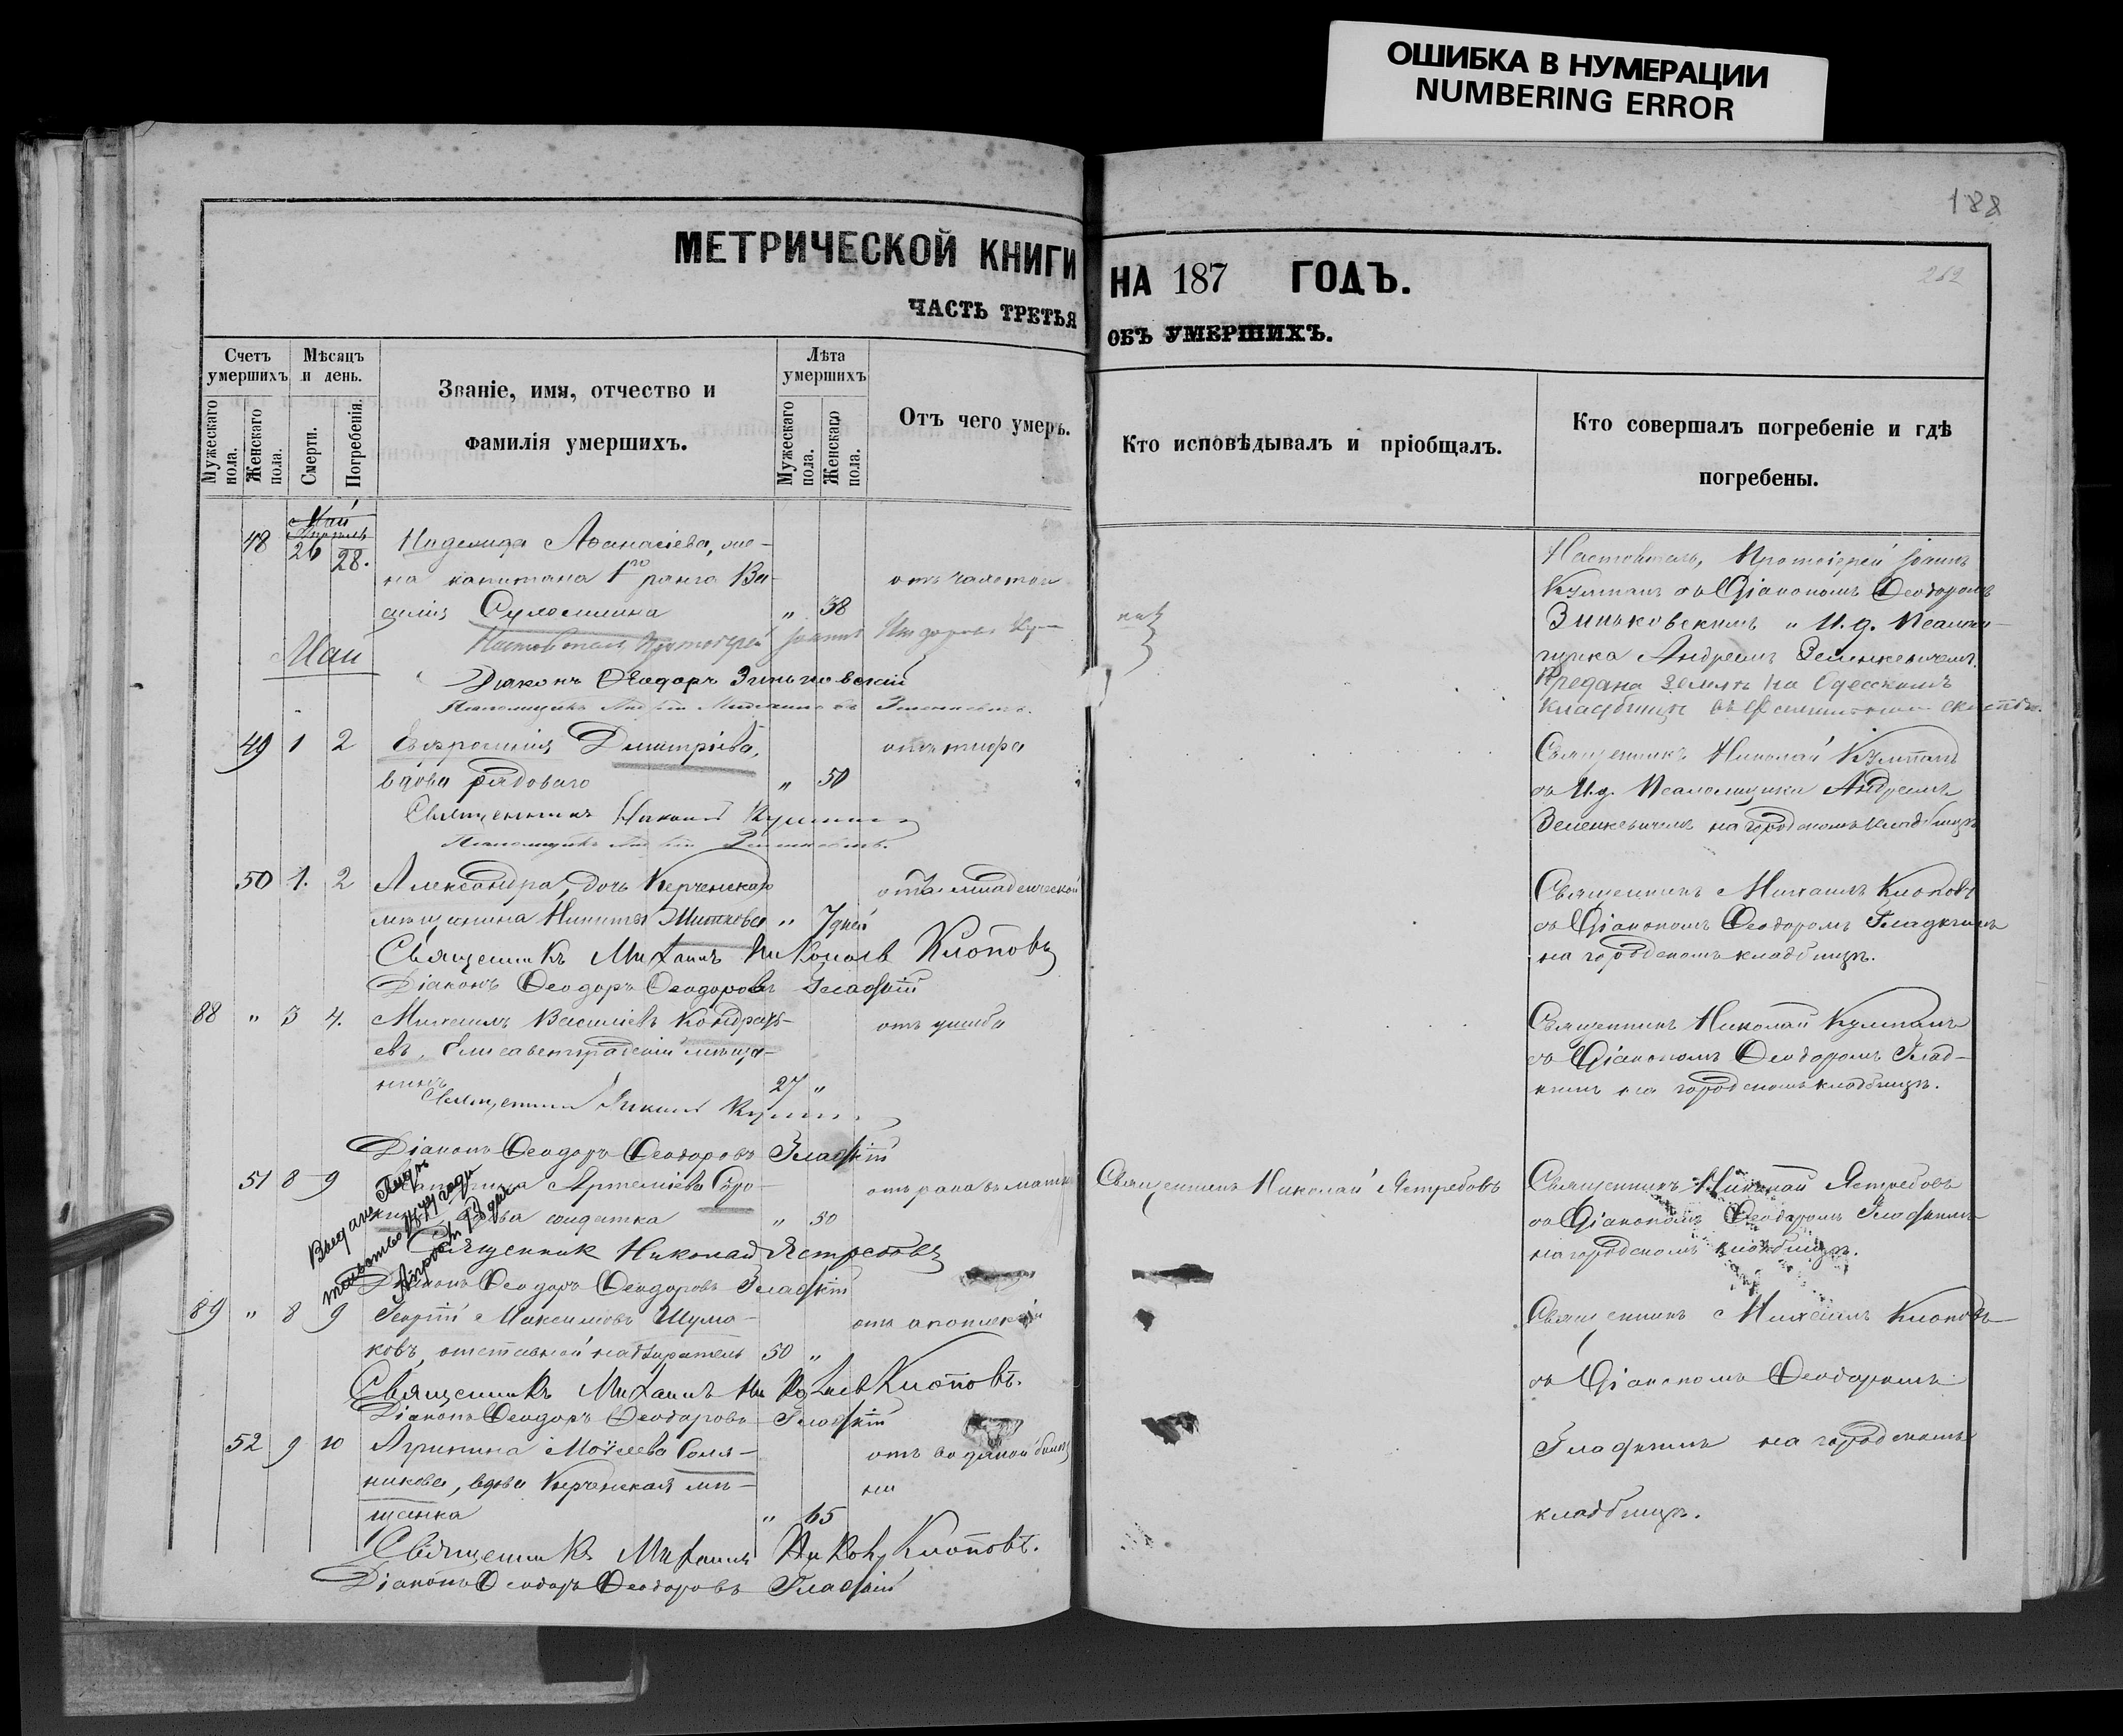 ОШИБКА В НУМЕРАЦИИ
NUMBERING ERROR
188
262
МЕТРИЧЕСКОЙ КНИГИ НА 187 ГОДЪ.
ЧАСТЬ ТРЕТЬЯ ОБЪ УМЕРШИХЪ.
Счетъ умершихъ
Мужескаго пола.
Женскаго пола.
Мѣсяцъ и день.
Смерти.
Погребенія.
Званіе, имя, отчество и
фамилія умершихъ.
Лѣта умершихъ
Мужескаго пола.
Женскаго пола.
Отъ чего умеръ.
Кто исповѣдывалъ и пріобщалъ.
Кто совершалъ погребеніе и гдѣ
погребены.
Май
Апрель
48 26 28. Надежда Аѳанасіева, же-
на капитана 1го ранга Ва- отъ чахотки
силія " 38
Настоятель Протоіерей Іоаннъ
Діаконъ Ѳеодоръ Зиньковскій
Настоятель, Протоіерей Іоаннъ
Кулманъ съ Діакономъ Ѳеодоромъ
Зиньковскимъ и И.д. Псалом-
щика Андреемъ Зеленкевичемъ.
Предана землѣ на Одесскомъ
кладбищѣ
Май
49 1 2 Евфросинія Дмитріева, отъ тифа
вдова рядоваго " 50
Священникъ Николай Кулманъ
Псаломщикъ Андрей Зеленкевичъ.
Священникъ Николай Кулманъ
съ И.д. Псаломщика Андреемъ
Зеленкевичемъ на городскомъ кладбищѣ
50 1. 2 Александра, дочь Керченскаго отъ младенческой
мѣщанина Никиты Миткова " 7 дней
Священникъ Михаилъ Николаевъ Клоповъ
Діаконъ Ѳеодоръ Ѳеодоровъ Гладкій
Священникъ Михаилъ Клоповъ
съ Діакономъ Ѳеодоромъ Гладкимъ
на городскомъ кладбищѣ.
88 " 3 4. Михаилъ Василіевъ Кондрать- отъ ушиба
евъ, Елисаветградскій мѣща-
нинъ 27 "
Священникъ Николай Кулманъ
Діаконъ Ѳеодоръ Ѳеодоровъ Гладкій
Священникъ Николай Кулманъ
съ Діакономъ Ѳеодоромъ Глад-
кимъ на городскомъ кладбищѣ.
51 8 9 Артеміева отъ рака въ маткѣ Священникъ Николай Ястребовъ
вдова солдатка " 50
Священник Николай Ястребовъ
Діаконъ Ѳеодоръ Ѳеодоровъ Гладкій
Священникъ Николай Ястребовъ
съ Діакономъ Ѳеодоромъ Гладкимъ
на городскомъ кладбищѣ.
89 " 8 9 Георгій Максимовъ Шума- отъ апоплексіи
ковъ, отставной надзиратель 50 "
Священникъ Михаилъ Николаевъ Клоповъ.
Діаконъ Ѳеодоръ Ѳеодоровъ Гладкій
Священникъ Михаилъ Клоповъ
съ Діакономъ Ѳеодоромъ
Гладкимъ на городскомъ
кладбищѣ.
52 9 10 Агрипина Моѵсеева Соля- отъ водяной болѣз
никова, вдова Керченская мѣ- ни
щанка " 65
Священникъ Михаилъ Клоповъ.
Діаконъ Ѳеодоръ Ѳеодоровъ Гладкій